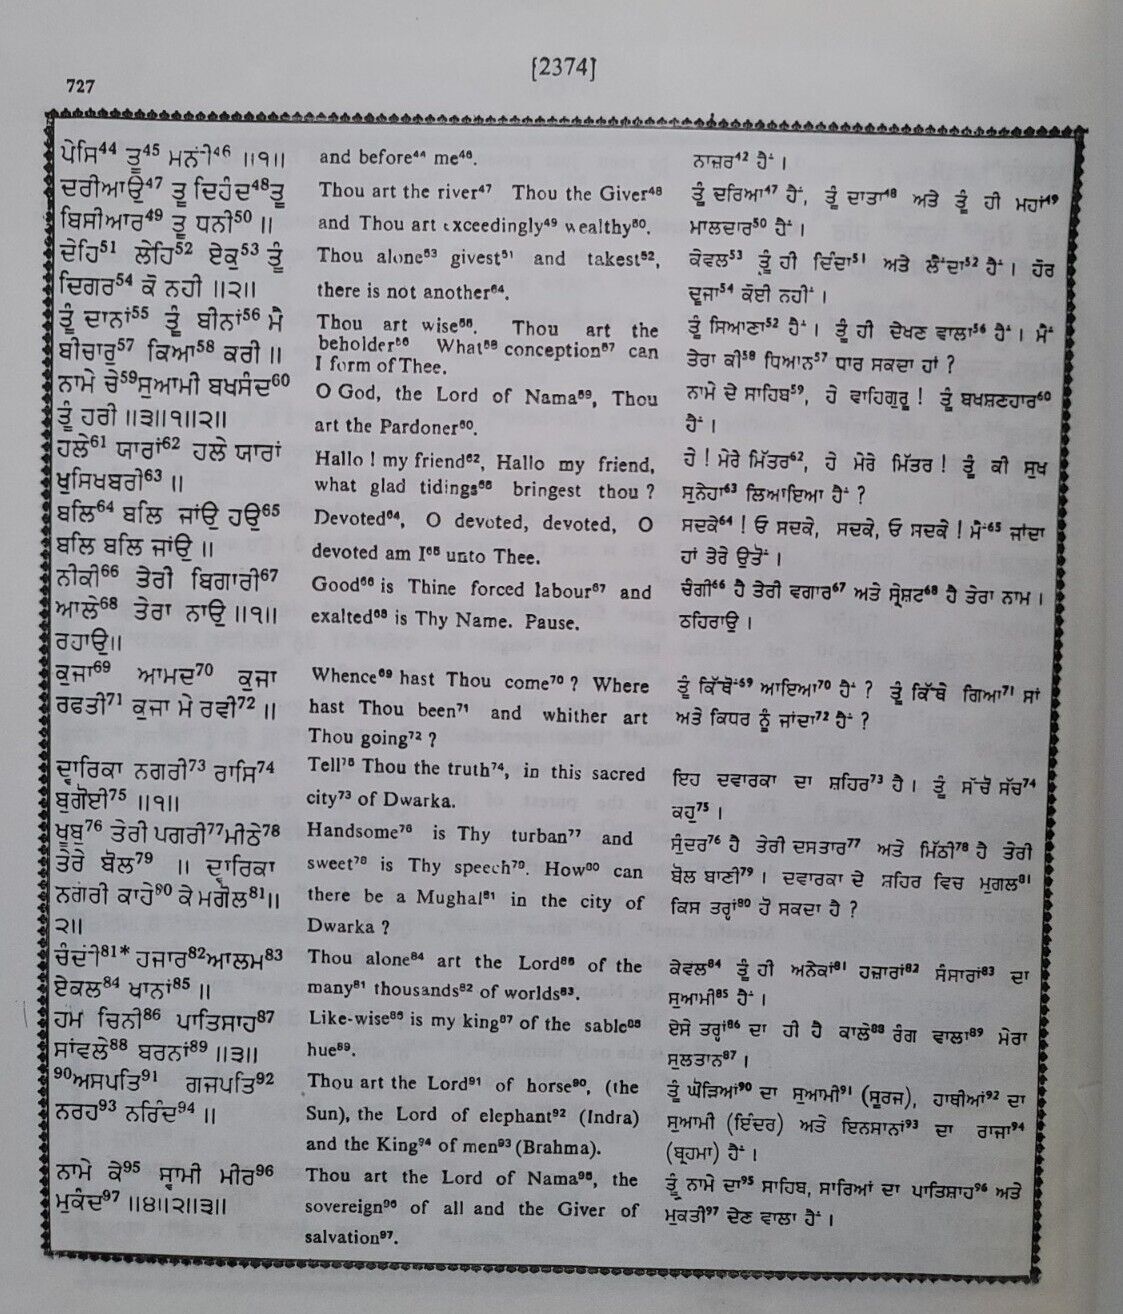 [2374]
727
ਪੇਸਿ44 ਤੂ45 ਮਨੀਂ46 ॥੧॥
ਦਰੀਆਉ47 ਤੂ ਦਿਹੰਦ48ਤੂ
ਬਿਸੀਆਰ49 ਤੂ ਧਨੀ50 ॥
ਦੇਹਿ51 ਲੇਹਿ52 ਏਕੁ53 ਤੂੰ
ਦਿਗਰ54 ਕੋ ਨਹੀ ॥੨॥
ਤੂੰ ਦਾਨਾਂ55 ਤੂੰ ਬੀਨਾਂ56 ਮੈ
ਬੀਚਾਰੁ57 ਕਿਆ58 ਕਰੀ ॥
ਨਾਮੇ ਚੇ59ਸੁਆਮੀ ਬਖਸੰਦ60
ਤੂੰ ਹਰੀ ॥੩॥੧॥੨॥
ਹਲੇ61 ਯਾਰਾਂ62 ਹਲੇ ਯਾਰਾਂ
ਖੁਸਿਖਬਰੀ63 ॥
ਬਲਿ64 ਬਲਿ ਜਾਂਉ ਹਉ65
ਬਲਿ ਬਲਿ ਜਾਂਉ ॥
ਨੀਕੀ66 ਤੇਰੀ ਬਿਗਾਰੀ67
ਆਲੇ68 ਤੇਰਾ ਨਾਉ ॥੧॥
ਰਹਾਉ॥
ਕੁਜਾ69 ਆਮਦ70 ਕੁਜਾ
ਰਫਤੀ71 ਕੁਜਾ ਮੇ ਰਵੀ72 ॥
ਦ੍ਵਾਰਿਕਾ ਨਗਰੀ73 ਰਾਸਿ74
ਬੁਗੋਈ75 ॥੧॥
ਖੂਬੁ76 ਤੇਰੀ ਪਗਰੀ77ਮੀਠੇ78
ਤੇਰੇ ਬੋਲ79 ॥ ਦ੍ਵਾਰਿਕਾ
ਨਗਰੀ ਕਾਹੇ80 ਕੇ ਮਗੋਲ81॥
੨॥
ਚੰਦੀਂ81* ਹਜਾਰ82ਆਲਮ83
ਏਕਲ84 ਖਾਨਾਂ85 ॥
ਹਮ ਚਿਨੀ86 ਪਾਤਿਸਾਹ87
ਸਾਂਵਲੇ88 ਬਰਨਾਂ89 ॥੩॥
90ਅਸਪਤਿ91 ਗਜਪਤਿ92
ਨਰਹ93 ਨਰਿੰਦ94 ॥
ਨਾਮੇ ਕੇ95 ਸ੍ਵਾਮੀ ਮੀਰ96
ਮੁਕੰਦ97 ॥੪॥੨॥੩॥
and before44 me46.
Thou art the river47 Thou the Giver48
and Thou art exceedingly49 wealthy50.
Thou alone53 givest51 and takest52,
there is not another54.
Thou art wise55. Thou art the
beholder56 What58 conception57 can
I form of Thee.
O God, the Lord of Nama59, Thou
art the Pardoner60.
Hallo ! my friend62, Hallo my friend,
what glad tidings63 bringest thou ?
Devoted64, O devoted, devoted, O
devoted am I65 unto Thee.
Good66 is Thine forced labour67 and
exalted68 is Thy Name. Pause.
Whence69 hast Thou come70 ? Where
hast Thou been71 and whither art
Thou going72 ?
Tell75 Thou the truth74, in this sacred
city73 of Dwarka.
Handsome76 is Thy turban77 and
sweet78 is Thy speech79. How80 can
there be a Mughal81 in the city of
Dwarka ?
Thou alone84 art the Lord85 of the
many81 thousands82 of worlds83.
Like-wise86 is my king87 of the sable88
hue89.
Thou art the Lord91 of horse90, (the
Sun), the Lord of elephant92 (Indra)
and the King94 of men93 (Brahma).
Thou art the Lord of Nama95, the
sovereign96 of all and the Giver of
salvation97.
ਨਾਜ਼ਰ42 ਹੈਂ ।
ਤੂੰ ਦਰਿਆ47 ਹੈਂ, ਤੂੰ ਦਾਤਾ48 ਅਤੇ ਤੂੰ ਹੀ ਮਹਾਂ49
ਮਾਲਦਾਰ50 ਹੈਂ ।
ਕੇਵਲ53 ਤੂੰ ਹੀ ਦਿੰਦਾ51 ਅਤੇ ਲੈਂਦਾ52 ਹੈਂ । ਹੋਰ
ਦੂਜਾ54 ਕੋਈ ਨਹੀਂ ।
ਤੂੰ ਸਿਆਣਾ52 ਹੈਂ । ਤੂੰ ਹੀ ਦੇਖਣ ਵਾਲਾ56 ਹੈਂ । ਮੈਂ
ਤੇਰਾ ਕੀ58 ਧਿਆਨ57 ਧਾਰ ਸਕਦਾ ਹਾਂ ?
ਨਾਮੇ ਦੇ ਸਾਹਿਬ59, ਹੇ ਵਾਹਿਗੁਰੂ ! ਤੂੰ ਬਖਸ਼ਣਹਾਰ60
ਹੈਂ ।
ਹੇ ! ਮੇਰੇ ਮਿੱਤਰ62, ਹੇ ਮੇਰੇ ਮਿੱਤਰ ! ਤੂੰ ਕੀ ਸੁਖ
ਸੁਨੇਹਾ63 ਲਿਆਇਆ ਹੈਂ ?
ਸਦਕੇ64 ! ਓ ਸਦਕੇ, ਸਦਕੇ, ਓ ਸਦਕੇ ! ਮੈਂ65 ਜਾਂਦਾ
ਹਾਂ ਤੇਰੇ ਉਤੋਂ ।
ਚੰਗੀ66 ਹੈ ਤੇਰੀ ਵਗਾਰ67 ਅਤੇ ਸ੍ਰੇਸ਼ਟ68 ਹੈ ਤੇਰਾ ਨਾਮ ।
ਠਹਿਰਾਉ ।
ਤੂੰ ਕਿੱਥੋਂ69 ਆਇਆ70 ਹੈਂ ? ਤੂੰ ਕਿੱਥੇ ਗਿਆ71 ਸਾਂ
ਅਤੇ ਕਿਧਰ ਨੂੰ ਜਾਂਦਾ72 ਹੈਂ ?
ਇਹ ਦਵਾਰਕਾ ਦਾ ਸ਼ਹਿਰ73 ਹੈ । ਤੂੰ ਸੱਚੋ ਸੱਚ74
ਕਹੁ75 ।
ਸੁੰਦਰ76 ਹੈ ਤੇਰੀ ਦਸਤਾਰ77 ਅਤੇ ਮਿੱਠੀ78 ਹੈ ਤੇਰੀ
ਬੋਲ ਬਾਣੀ79 । ਦਵਾਰਕਾ ਦੇ ਸ਼ਹਿਰ ਵਿਚ ਮੁਗਲ81
ਕਿਸ ਤਰ੍ਹਾਂ80 ਹੋ ਸਕਦਾ ਹੈ ?
ਕੇਵਲ84 ਤੂੰ ਹੀ ਅਨੇਕਾਂ81 ਹਜ਼ਾਰਾਂ82 ਸੰਸਾਰਾਂ83 ਦਾ
ਸੁਆਮੀ85 ਹੈਂ ।
ਏਸੇ ਤਰ੍ਹਾਂ86 ਦਾ ਹੀ ਹੈ ਕਾਲੇ88 ਰੰਗ ਵਾਲਾ89 ਮੇਰਾ
ਸੁਲਤਾਨ87 ।
ਤੂੰ ਘੋੜਿਆਂ90 ਦਾ ਸੁਆਮੀ91 (ਸੂਰਜ), ਹਾਥੀਆਂ92 ਦਾ
ਸੁਆਮੀ (ਇੰਦਰ) ਅਤੇ ਇਨਸਾਨਾਂ93 ਦਾ ਰਾਜਾ94
(ਬ੍ਰਹਮਾ) ਹੈਂ ।
ਤੂੰ ਨਾਮੇ ਦਾ95 ਸਾਹਿਬ, ਸਾਰਿਆਂ ਦਾ ਪਾਤਿਸ਼ਾਹ96 ਅਤੇ
ਮੁਕਤੀ97 ਦੇਣ ਵਾਲਾ ਹੈਂ ।